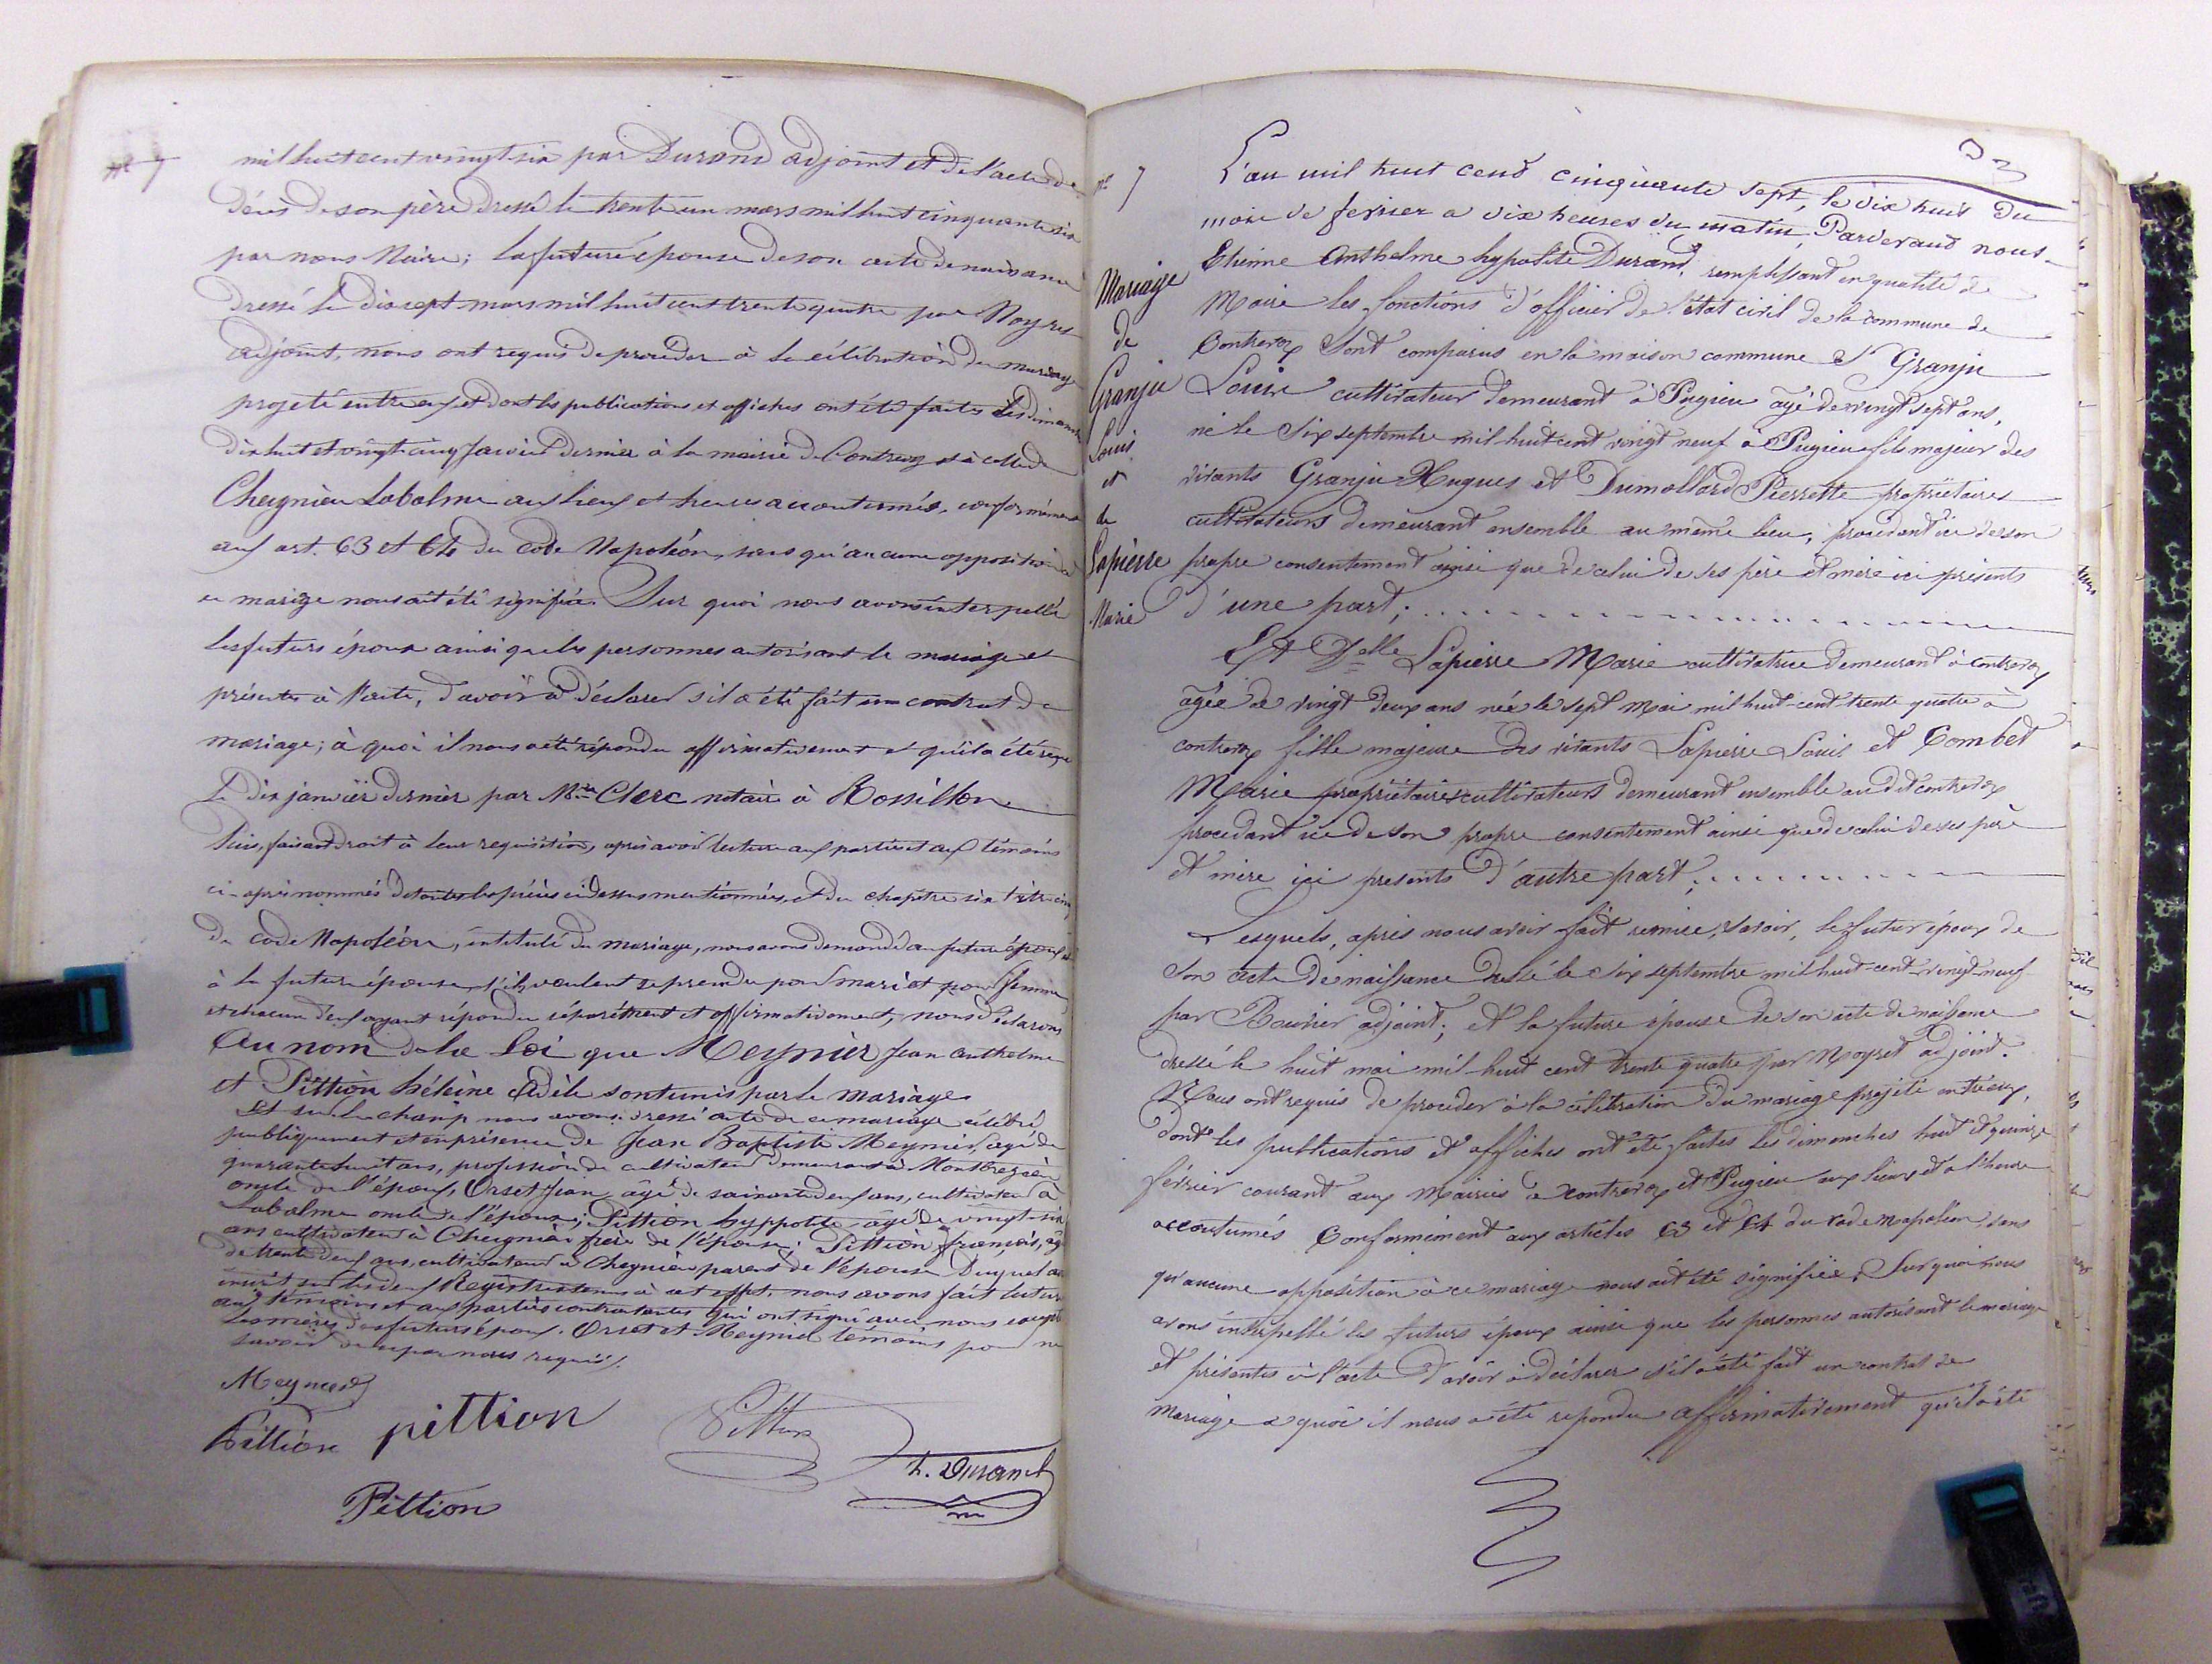 mil huit cent vingt six par Durand adjoint et de l'acte de
décès de son père dressé le trente un mars mil huit cinquante six
par nous Maire; la future épouse de son acte de naissance
dressé le dix sept mars mil huit cent trente quatre par Moyret
adjoint, nous ont requis de procéder à la célébration du mariage
projeté entre eux et dont les publications et affiches ont été faites les dimanches
dix huit et vingt cinq janvier dernier à la mairie de Contrevoz et à celle de
Cheignieu Labalme aux lieux et heures accoutumés, conformément
aux art. 63 et 64 du code Napoléon, sans qu'aucune opposition à
ce mariage nous ait été signifiée. Sur quoi nous avons interpellé
les futurs époux ainsi que les personnes autorisant le mariage et
présentes à l'acte, d'avoir à déclarer s'il a été fait un contrat de
mariage; à quoi il nous a été répondu affirmativement et qu'il a été reçu
le dix janvier dernier par Me Clerc notaire à Rossillon
Puis, faisant droit à leur requisition, après avoir lecture aux parties et aux témoins
ci-après nommés de toutes les pièces ci dessus mentionnées, et du chapitre six titre cinq
du code Napoléon, intitulé du mariage, nous avons demandé au futur époux et
à la future épouse s'ils veulent se prendre pour mari et pour femme
et chacun d'eux ayant répondu séparément et affirmativement, nous déclarons
Au nom de la Loi que Meynier Jean Anthelme
et Pittion héleine Adèle sont unis par le mariage
Et sur le champ nous avons dressé acte de ce mariage célébré
publiquement et en présence de Jean Baptiste Meynier, agé de
quarante huit ans, profession de cultivateur demeurant à
oncle de l'époux, Orset Jean agé de soixante deux ans, cultivateur à
Labalme oncle de l'épouse; Pittion hyppolite agé de vingt six
ans cultivateur à Cheignieu frère de l'épouse; Pittion françois, agé
de trente deux ans, cultivateur à Cheignieu parent de l'épouse Duquel acte
inscrit sur les deux Registres tenus à cet effet, nous avons fait lecture
aux témoins et aux parties contractantes qui ont signé avec nous excepté
les mères des futurs époux. Orset et Meynier témoins pour ne
savoir de ce par nous requis.
Meynier
Pittion pittion Pittion
h. Durand
Pittion
No 7
Mariage
de
Granju
Louis
et
de
Lapierre
Marie
L'an mil huit cent cinquante sept, le dix huit du
mois de fevrier a dix heures du matin, Pardevant nous
Etienne Anthelme hypolite Durand, remplissant en qualité de
Maire les fonctions d'officier de l'état civil de la commune de
Contrevoz Sont comparus en la maison commune Sr Granju
Louis cultivateur demeurant à Pugieu agé de vingt sept ans,
né le six septembre mil huit cent vingt neuf à Pugieu fils majeur des
vivants Granju Hugues et Dumollard Pierrette propriétaires
cultivateurs demeurant ensemble au même lieu, procédant ici de son
propre consentement ainsi que de celui de ses père et mère ici présents
d'une part;
Et Delle Lapierre Marie cultivatrice demeurant à Contrevoz
agée de vingt deux ans née le sept Mai mil huit cent trente quatre à
contrevoz fille majeure des vivants Lapierre Louis et Combet
Marie propriétaires cultivateurs demeurant ensemble au dit contrevoz
procedant ici de son propre consentement ainsi que de celui de ses père
et mère ici presents d'autre part;
Lesquels, après nous avoir fait remise, savoir, le futur époux de
son acte de naissance dressé le six septembre mil huit-cent-vingt-neuf
par Bouvier adjoint; et la future épouse de son acte de naissance
dressé le huit mai mil huit cent trente quatre par Moyret adjoint.
Nous ont requis de procéder à la célébration du mariage projeté entr'eux,
dont les publications et affiches ont été faites les dimanches huit et quinze
février courant aux Mairies de contrevoz et Pugieu aux lieux et à l'heure
accoutumés Conformément aux articles 63 et 64 du code napoléon, sans
qu'aucune opposition à ce mariage nous ait été signifiée; Sur quoi nous
avons interpellé les futurs époux ainsi que les personnes autorisant le mariage
et présentes à l'acte d'avoir à déclarer s'il a été fait un contrat de
mariage a quoi il nous a été répondu affirmativement qu'il a été